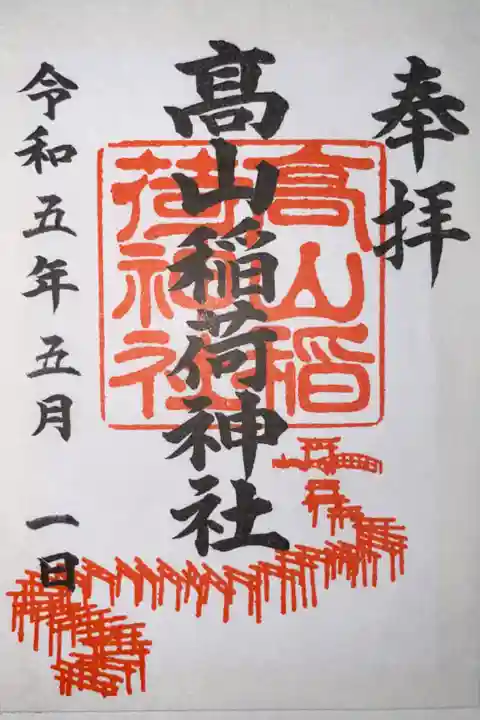 奉拝
髙山稲荷神社
髙山稲
荷神社
令和五年五月 一日